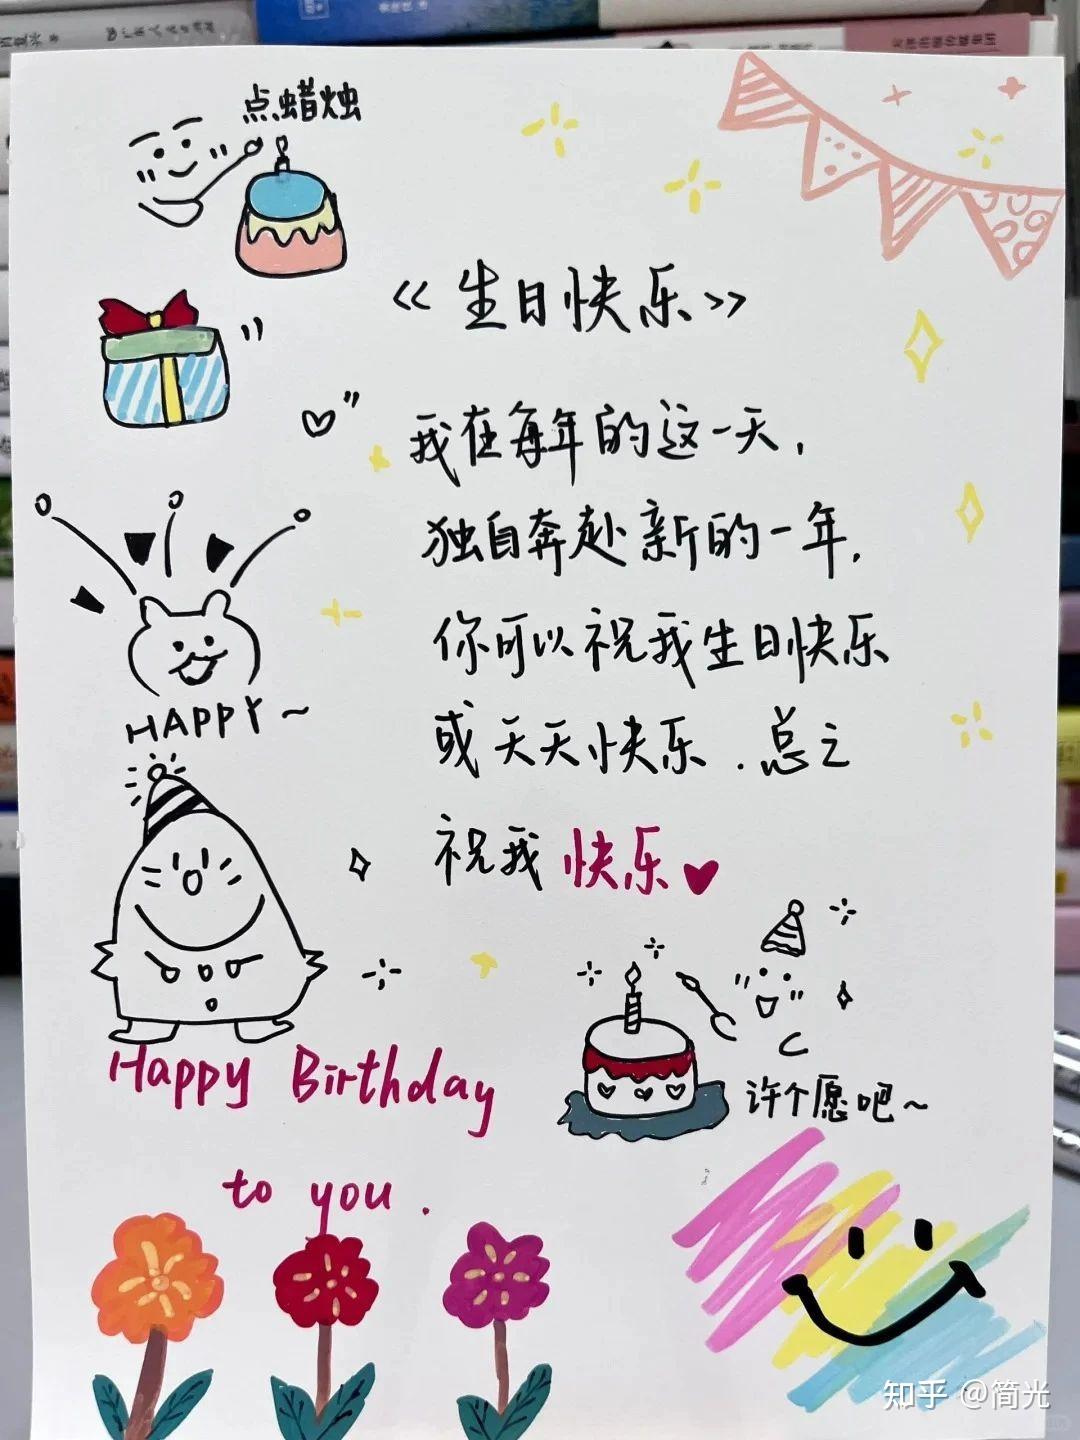 点蜡烛
《生日快乐》
我在每年的这一天，
独自奔赴新的一年，
你可以祝我生日快乐
或天天快乐．总之
祝我快乐
HAPPY～
Happy Birthday
to you.
许个愿吧～
知乎 @简光